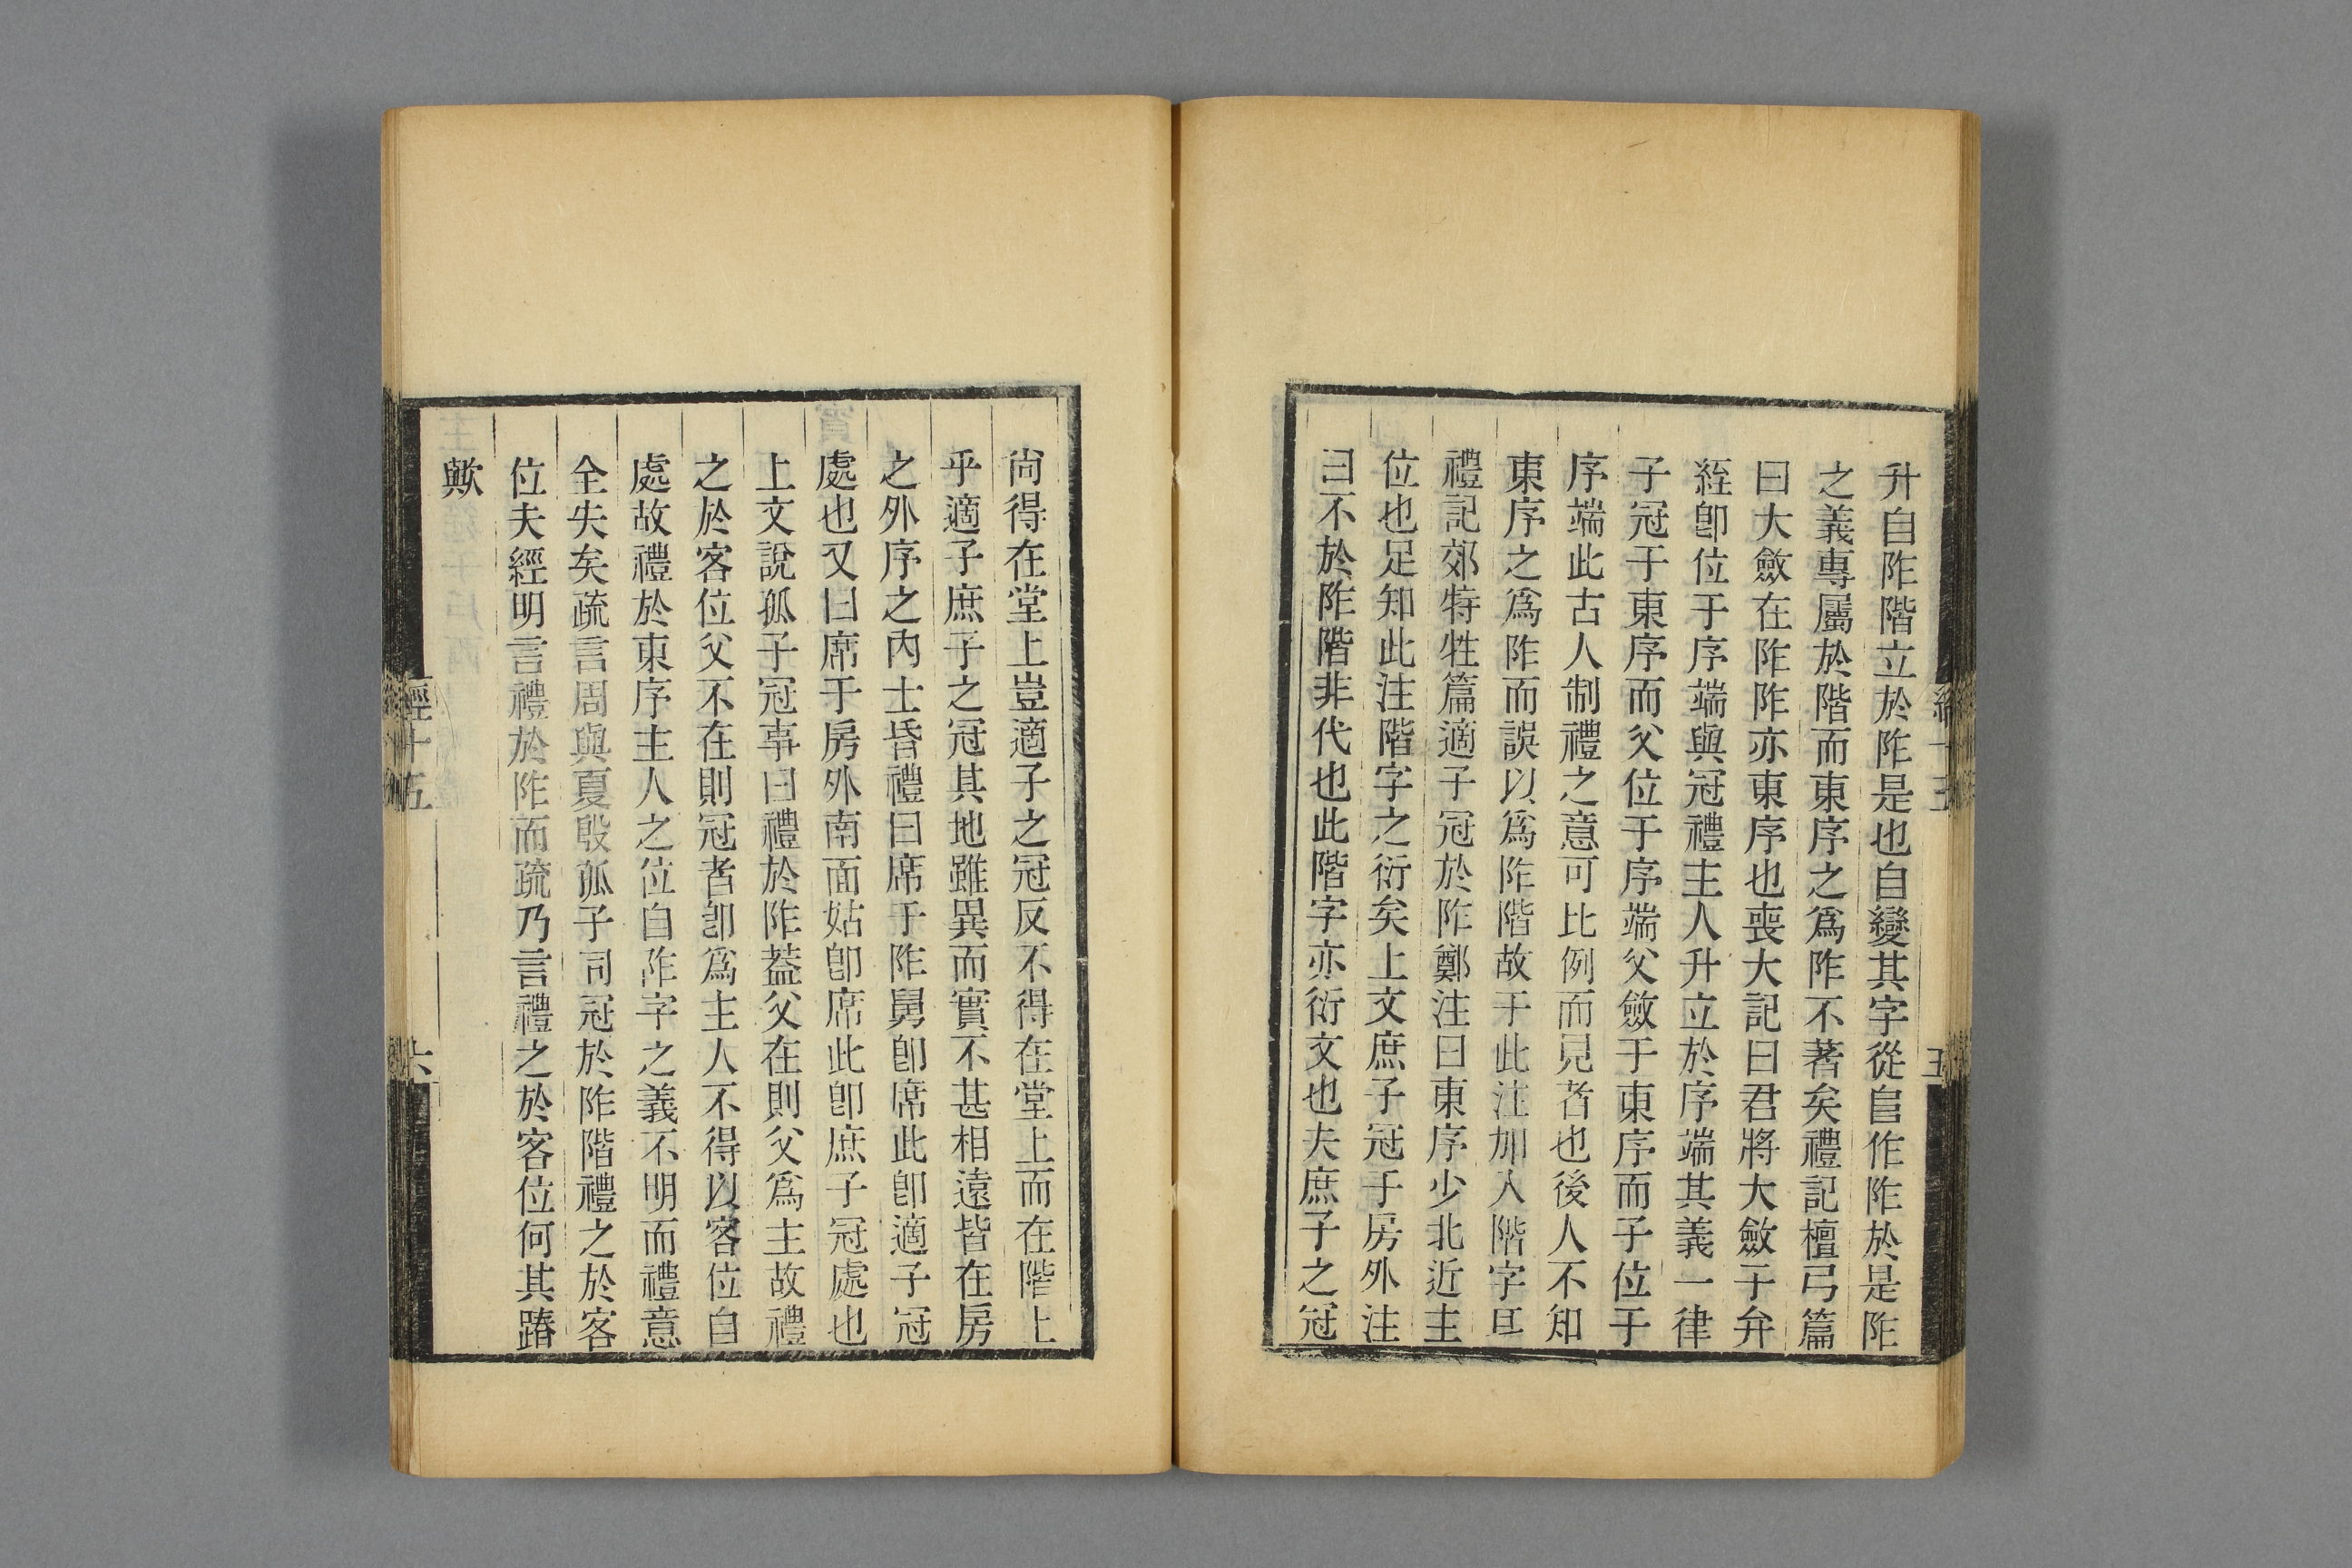 升自阼階立於阼是也自變其字從𨸏作阼於是阼
之義專屬於階而東序之爲阼不著矣禮記檀弓篇
曰大斂在阼阼亦東序也喪大記曰君將大斂于弁
絰卽位于序端與冠禮主人升立於序端其義一律
子冠于東序而父位于序端父斂于東序而子位于
序端此古人制禮之意可比例而見者也後人不知
東序之爲阼而誤以爲阼階故于此注加入階字且
禮記郊特牲篇適子冠於阼鄭注曰東序少北近主
位也足知此注階字之衍矣上文庶子冠于房外注
曰不於阼階非代也此階字亦衍文也夫庶子之冠
尚得在堂上豈適子之冠反不得在堂上而在階上
乎適子庶子之冠其地雖異而實不甚相遠皆在房
之外序之內士昏禮曰席于阼舅卽席此卽適子冠
處也又曰席于房外南面姑卽席此卽庶子冠處也
上文說孤子冠事曰禮於阼葢父在則父爲主故禮
之於客位父不在則冠者卽爲主人不得以客位自
處故禮於東序主人之位自阼字之義不明而禮意
全失矣疏言周與夏殷孤子同冠於阼階禮之於客
位夫經明言禮於阼而疏乃言禮之於客位何其踳
歟
經十五
六